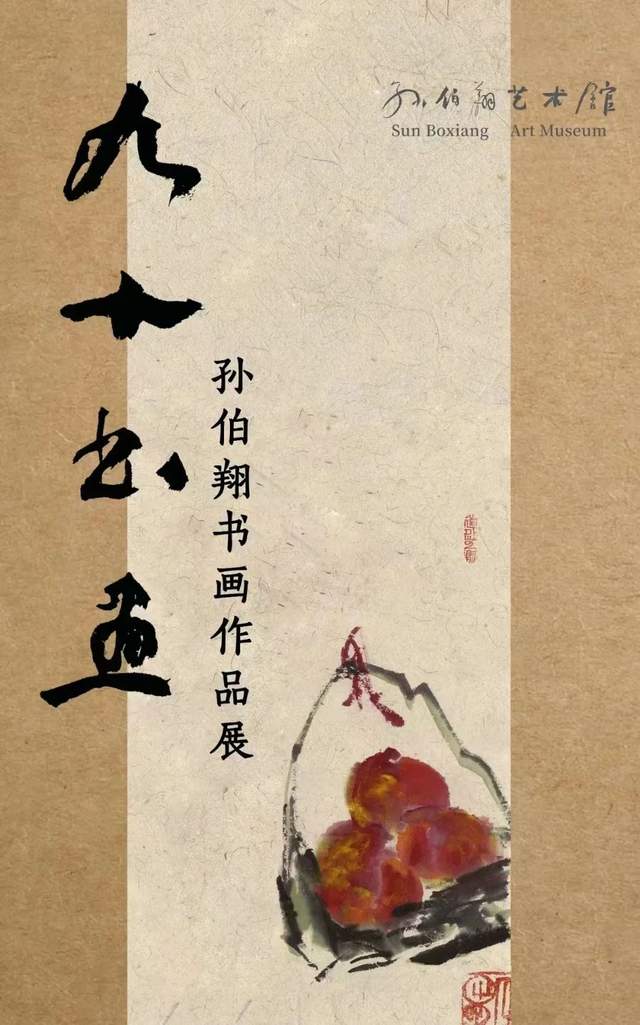 孙伯翔艺术馆
Sun Boxiang Art Museum
九十书画
孙伯翔书画作品展